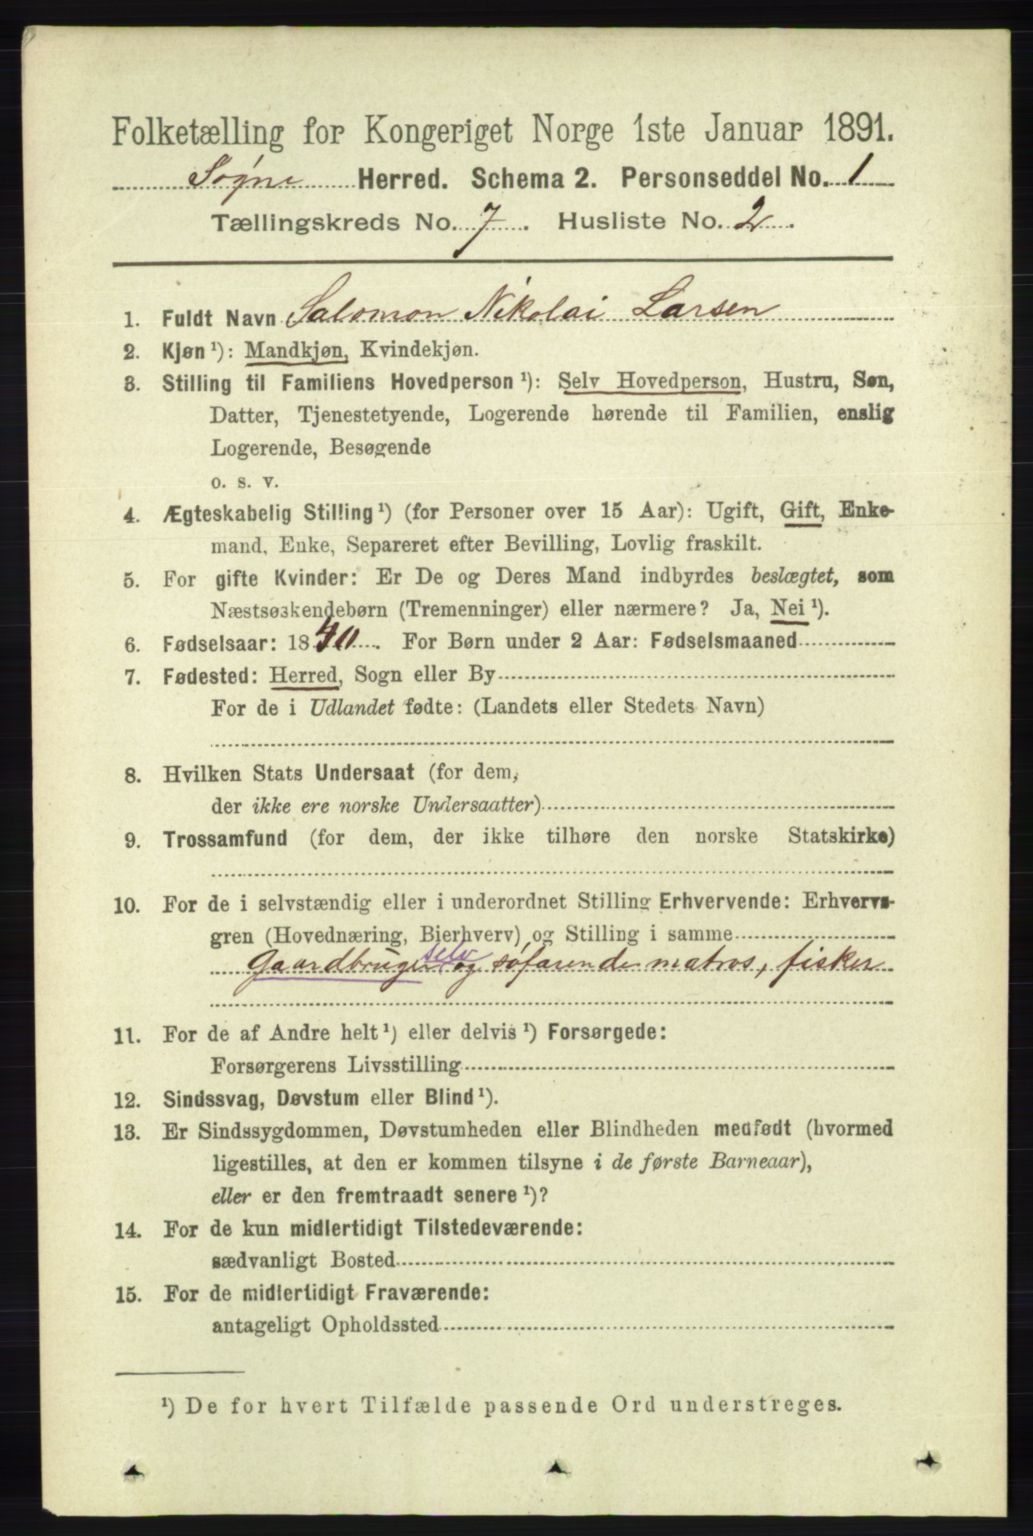 Folketælling for Kongeriget Norge 1ste Januar 1891.
Søgne Herred. Schema 2. Personseddel No. 1
Tællingskreds No. 7. Husliste No. 2.
1. Fuldt Navn Salomon Nikolai Larsen
2. Kjøn ¹): Mandkjøn, Kvindekjøn.
3. Stilling til Familiens Hovedperson ¹): Selv Hovedperson, Hustru, Søn,
Datter, Tjenestetyende, Logerende hørende til Familien, enslig
Logerende, Besøgende
o. s. v.
4. Ægteskabelig Stilling ¹) (for Personer over 15 Aar): Ugift, Gift, Enke-
mand, Enke, Separeret efter Bevilling, Lovlig fraskilt.
5. For gifte Kvinder: Er De og Deres Mand indbyrdes beslægtet, som
Næstsøskendebørn (Tremenninger) eller nærmere? Ja, Nei ¹).
6. Fødselsaar: 1840. For Børn under 2 Aar: Fødselsmaaned
7. Fødested: Herred, Sogn eller By
For de i Udlandet fødte: (Landets eller Stedets Navn)
8. Hvilken Stats Undersaat (for dem,
der ikke ere norske Undersaatter)
9. Trossamfund (for dem, der ikke tilhøre den norske Statskirke)
10. For de i selvstændig eller i underordnet Stilling Erhvervende: Erhvervs-
gren (Hovednæring, Bierhverv) og Stilling i samme
selv
Gaardbruger og søfarende matros, fisker
11. For de af Andre helt ¹) eller delvis ¹) Forsørgede:
Forsørgerens Livsstilling
12. Sindssvag, Døvstum eller Blind ¹).
13. Er Sindssygdommen, Døvstumheden eller Blindheden medfødt (hvormed
ligestilles, at den er kommen tilsyne i de første Barneaar),
eller er den fremtraadt senere ¹)?
14. For de kun midlertidigt Tilstedeværende:
sædvanligt Bosted
15. For de midlertidigt Fraværende:
antageligt Opholdssted
¹) De for hvert Tilfælde passende Ord understreges.